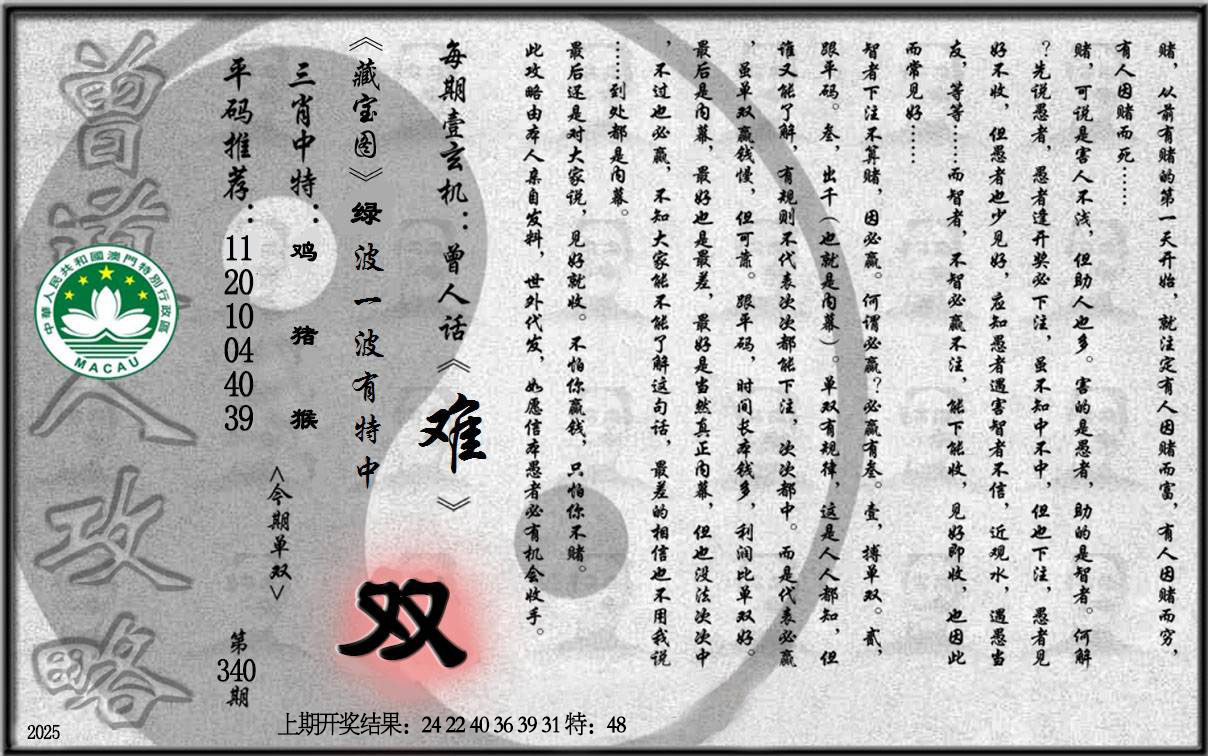 赌，从前有赌的第一天开始，就注定有人因赌而富，有人因赌而穷，
有人因赌而死……
赌，可说是害人不浅，但助人也多。害的是愚者，助的是智者。何解
？先说愚者，愚者逢开奖必下注，虽不知中不中，但也下注，愚者见
好不收，但愚者也少见好，应知愚者遇害智者不信，近观水，遇愚当
友，等等……而智者，不智必赢不注，能下能收，见好即收，也因此
而常见好……
智者下注不算赌，因必赢。何谓必赢？必赢有叁。壹，搏单双。贰，
跟平码。叁，出千（也就是内幕）。单双有规律，这是人人都知，但
谁又能了解，有规则不代表次次都能下注，次次都中。而是代表必赢
，虽单双赢钱慢，但可靠。跟平码，时间长本钱多，利润比单双好。
最后是内幕，最好也是最差，最好是当然真正内幕，但也没法次次中
，不过也必赢，不知大家能不能了解这句话，最差的相信也不用我说
……到处都是内幕。
最后还是对大家说，见好就收。不怕你赢钱，只怕你不赌。
此攻略由本人亲自发料，世外代发，如愿信本愚者必有机会收手。
每期壹玄机：曾人话《难》
《藏宝图》绿波一波有特中
双
三肖中特：鸡 猪 猴
<今期单双>
平码推荐：11 20 10 04 40 39
第340期
曾道人攻略
中華人民共和國澳門特別行政區
MACAU
上期开奖结果：24 22 40 36 39 31 特：48
2025